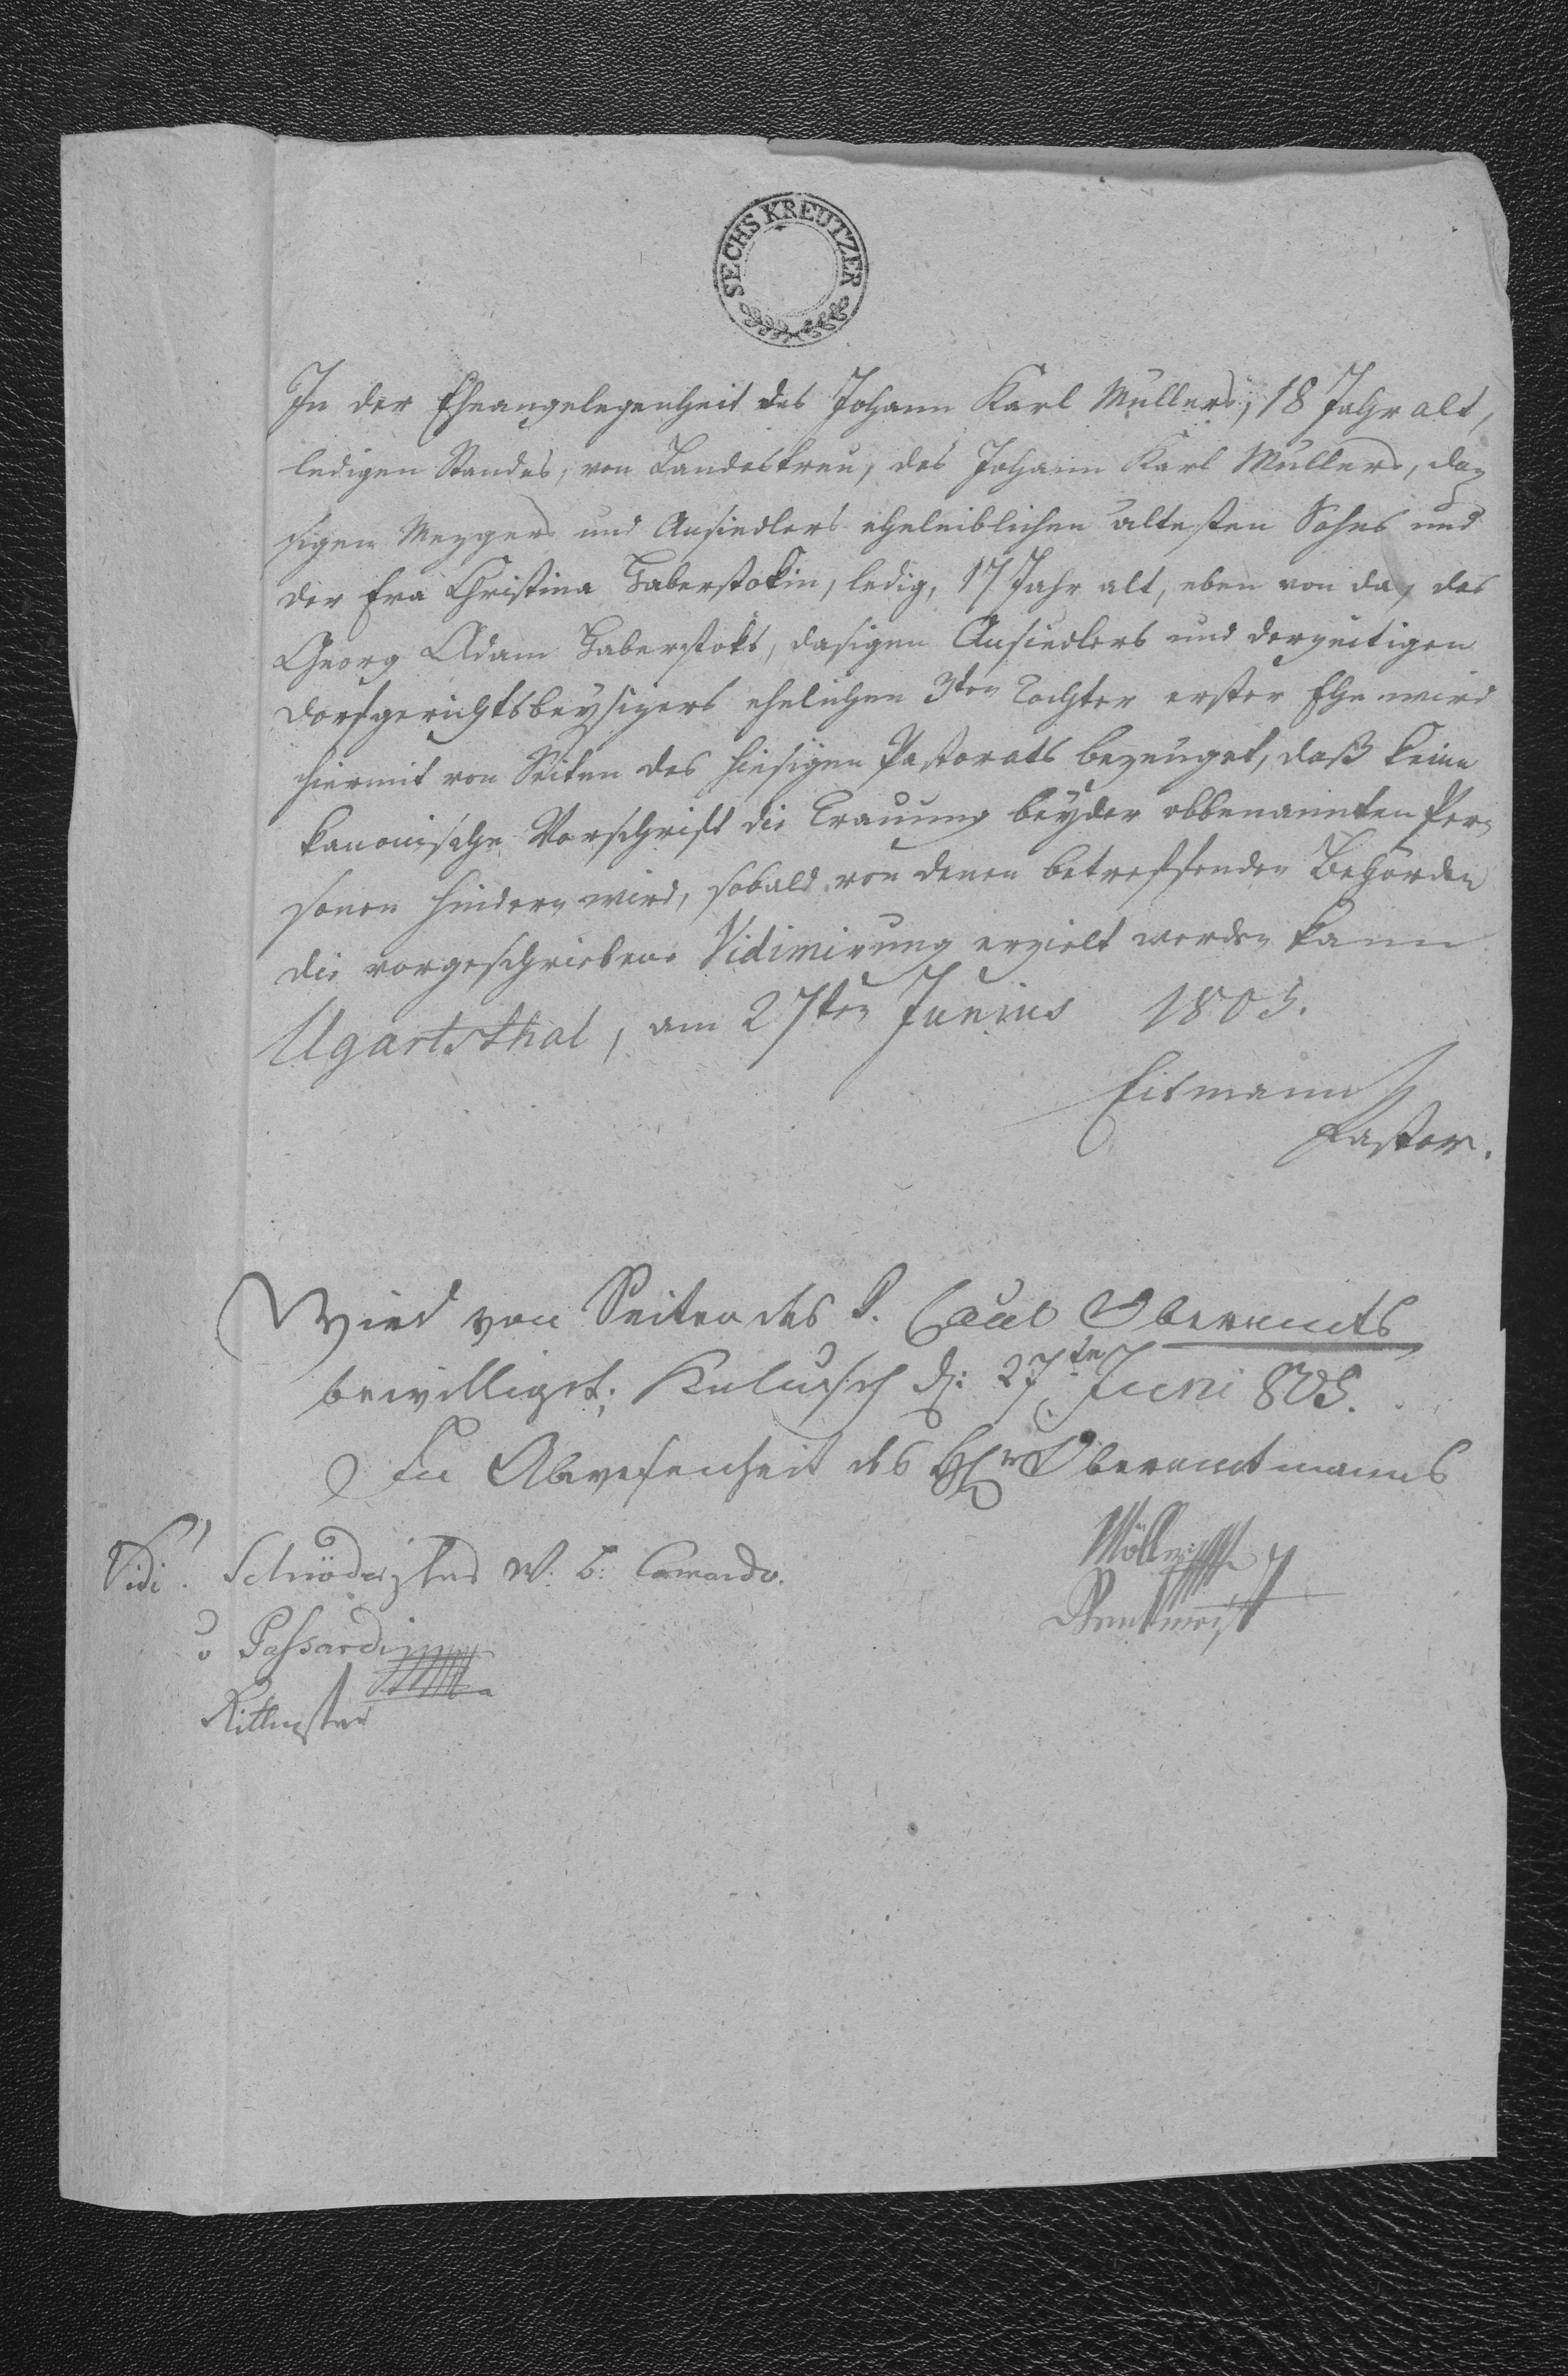 SECHS KREUTZER
In der Eheangelegenheit des Johann Karl Müllers, 18 Jahr alt,
ledigen Standes, von Landestreu, des Johann Karl Müllers, da-
sigen Mezgers und Ansiedlers eheleiblichen ältesten Sohns und
der Eva Christina Haberstokin, ledig, 17 Jahr alt, eben von da, des
Georg Adam Haberstoks, dasigen Ansiedlers und derzeitigen
Dorfgerichtsbeysizers ehelichen 3ten Tochter erster Ehe wird
hiermit von Seiten des hiesigen Pastorats bezeuget, daß keine
kanonische Vorschrift die Trauung beyder obbenannten Per-
sonen hindern wird, sobald von denen betreffenden Behörden
die vorgeschriebene Vidimirung erzielt werden kann
Ugartsthal, am 27ten Junius 1805.
Eitmann
Pastor.
Wird von Seiten des Oberamts
bewilliget; Kalusch d: 27ten Juni 805.
In Abwesenheit des H: Oberamtmanns
Vidi. W. B. Comando.
Möller
Rentmeist
v Passardi
Rittmster